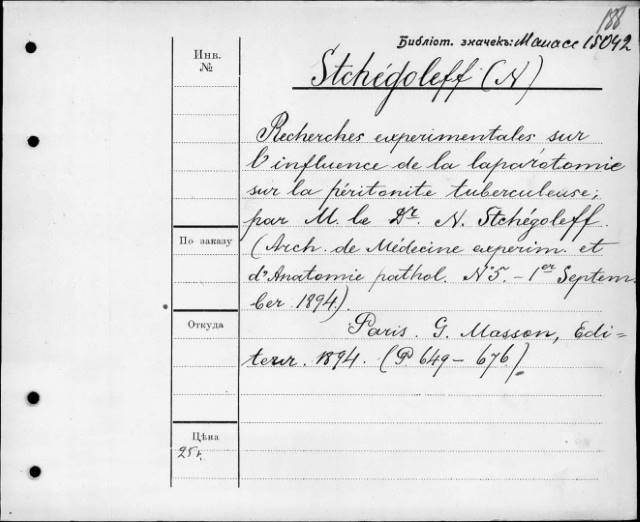 188
Библіот. значекъ: Манасс 15042
Инв.
№
Stchégoleff (N)
Recherches experimentales sur
l'influence de la laparotomie
sur la péritonite tuberculeuse;
par M. le Dr. N. Stchégoleff.
По заказу
(Arch. de Médecine experim. et
d'Anatomie pathol. N 5. – 1er Septem=
ber 1894.)
Откуда
Paris. G. Masson, Edi=
teur. 1894. (P 649 – 676.)
Цѣна
25к.